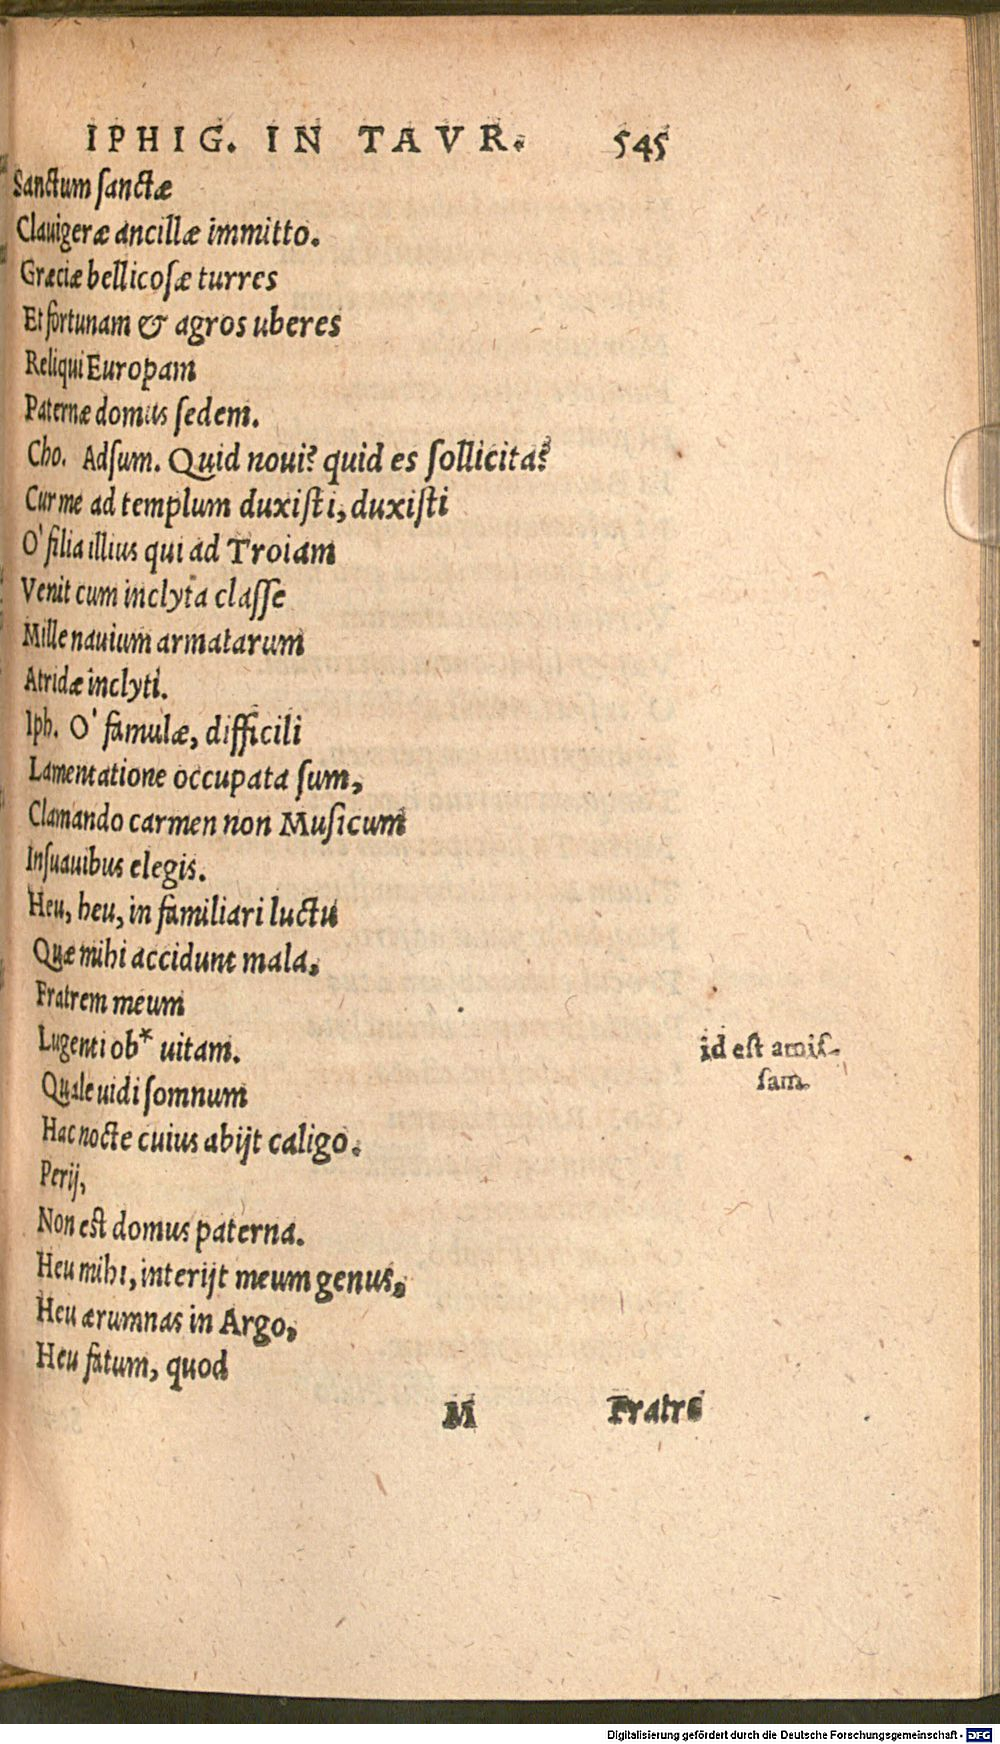 IPHIG. IN TAVR. 545
Sanctum sanctæ
Clauigeræ ancillæ immitto.
Græciæ bellicosæ turres
Et fortunam & agros uberes
Reliqui Europam
Paternæ domus sedem.
Cho. Adsum. Quid noui? quid es sollicita?
Cur me ad templum duxisti, duxisti
O' filia illius qui ad Troiam
Venit cum inclyta classe
Mille nauium armatarum
Atridæ inclyti.
Iph. O' famulæ, difficili
Lamentatione occupata sum,
Clamando carmen non Musicum
Insuauibus elegis.
Heu, heu, in familiari luctu
Quæ mihi accidunt mala,
Fratrem meum
Lugenti ob* uitam.
id est amis-
sam.
Quale uidi somnum
Hac nocte cuius abijt caligo.
Perij,
Non est domus paterna.
Heu mihi, interijt meum genus,
Heu ærumnas in Argo,
Heu fatum, quod
M Fratre
Digitalisierung gefördert durch die Deutsche Forschungsgemeinschaft - DFG